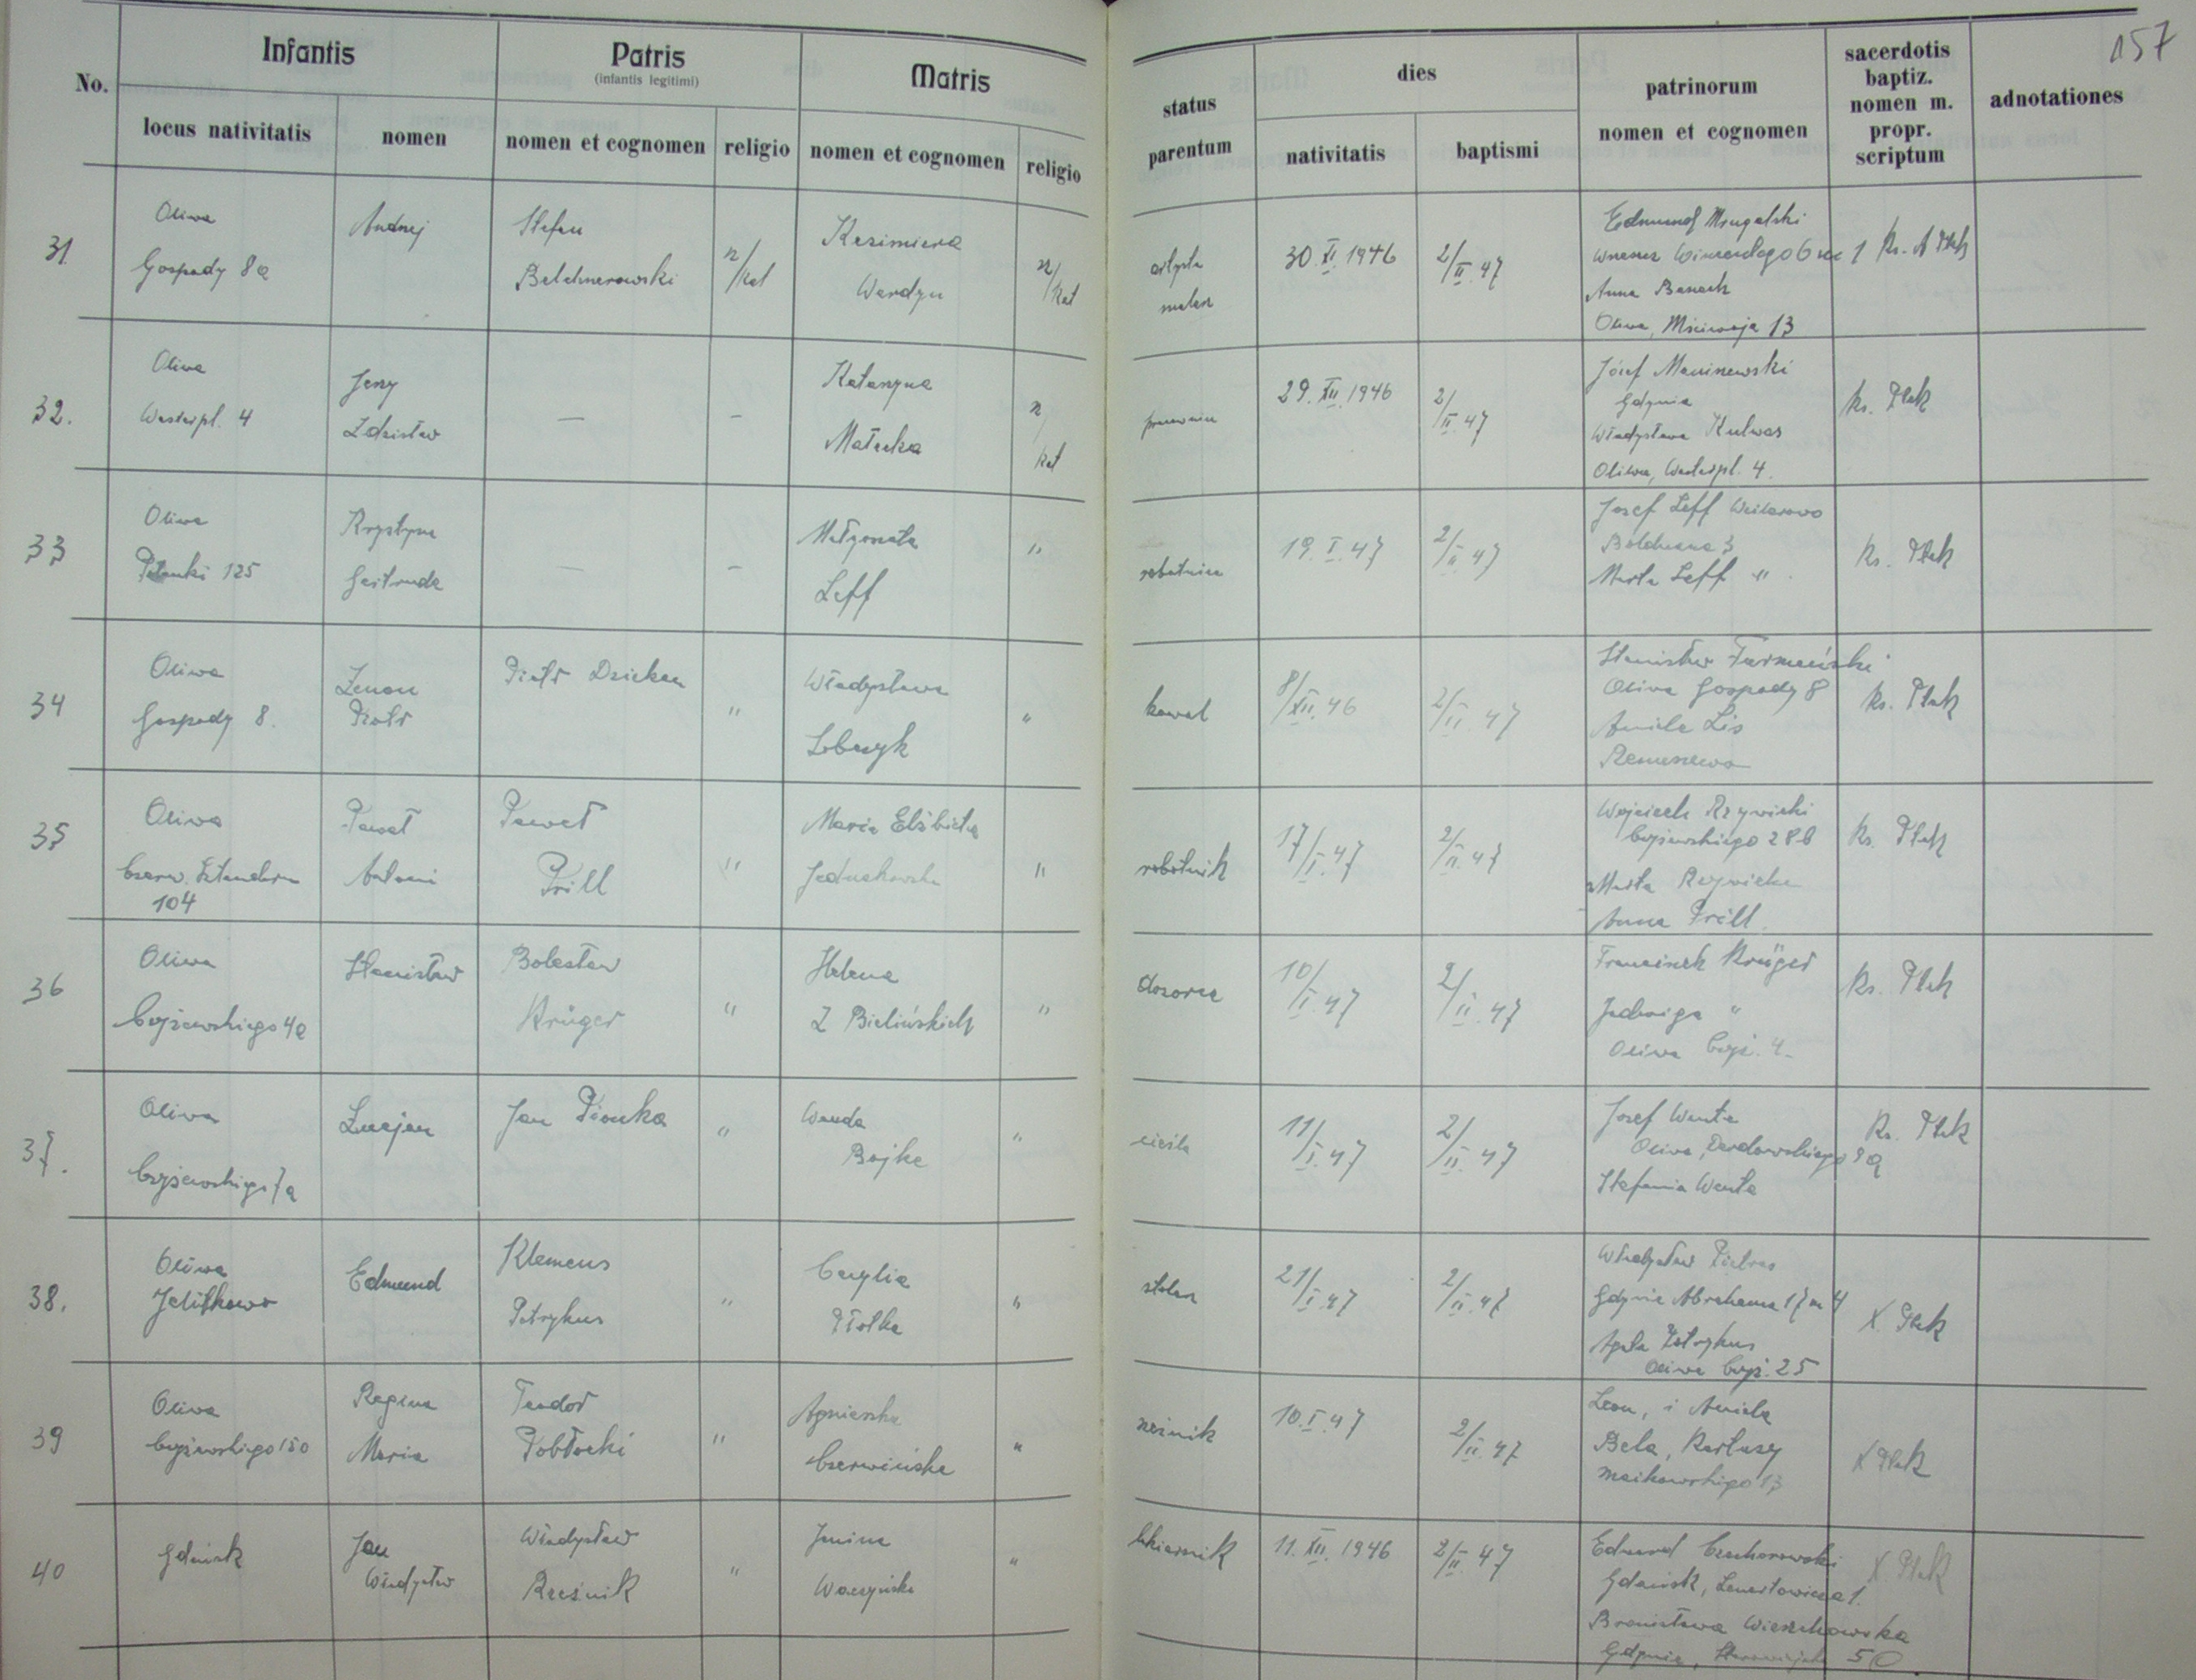 157
No.
Infantis
Patris
(infantis legitimi)
Matris
status parentum
dies
patrinorum nomen et cognomen
sacerdotis baptiz. nomen m. propr. scriptum
adnotationes
locus nativitatis
nomen
nomen et cognomen
religio
nomen et cognomen
religio
nativitatis
baptismi
31
Oliwa
Gospody 8a
Andrzej
Stefan
r/kat
Kazimiera
r/kat
artysta
malarz
30. XI. 1946
2/II. 47
Edmund
Anna Banach
Oliwa, Mściwoja 13
32.
Oliwa
Westerpl. 4
Jerzy
Zdzisław
—
—
Katarzyna
Małecka
r/kat
29. XII. 1946
2/II. 47
Józef
Gdynia
Władysława Kulwas
Oliwa, Westerpl. 4.
ks. Ptak
33
Oliwa
125
Krystyna
Gertruda
—
—
Małgorzata
Leff
"
robotnica
19. I. 47
2/II. 47
Josef Leff
3
Marta Leff "
Ks. Ptak
34
Oliwa
Gospody 8.
Zenon
Piotr
Piotr
"
Władysława
"
kowal
8/XII. 46
2/II. 47
Stanisław
Oliwa Gospody 8
Aniela Lis
ks. Ptak
35
Oliwa
Czerw. Sztandaru
104
Paweł
Antoni
Paweł
Prill
"
Maria Elżbieta
"
robotnik
17/I. 47
2/II. 47
Wojciech Rzywicki
Czyżewskiego 28b
Marta
Anna Prill
ks. Ptak
36
Oliwa
Czyżewskiego 4a
Stanisław
Bolesław
Krüger
"
Helena
Z Bielińskich
"
dozorca
10/I. 47
2/II. 47
Franciszek Krüger
Jadwiga "
Oliwa Czyż. 4.
Ks. Ptak
37.
Oliwa
Czyżewskiego 7a
Lucjan
Jan Pionka
"
Wanda
Bojke
"
cieśla
11/I. 47
2/II. 47
Josef Wenta
Oliwa, Derdowskiego 9a
Stefania Wenta
Ks. Ptak
38.
Oliwa
Jelitkowo
Edmund
Klemens
Petrykus
"
Cecylia
Piotka
"
stolarz
21/I. 47
2/II. 47
Władysław
Gdynia Abrahama 17 m 4
Agata Petrykus
Oliwa Czyż. 25
X. Ptak
39
Oliwa
Czyżewskiego
Regina
Maria
Teodor
Pobłocki
"
Agnieszka
Czerwińska
"
rzeźnik
10. I. 47
2/II. 47
Leon, i Aniela
Bela, Kartuzy
Majkowskiego 13
X Ptak
40
Gdańsk
Jan
Władysław
Władysław
Rzeźnik
"
Janina
"
11. XII. 1946
2/II. 47
Edmund
Gdańsk, Lenartowicza 1.
Bronisława Wierzchowska
Gdynia,
X Ptak